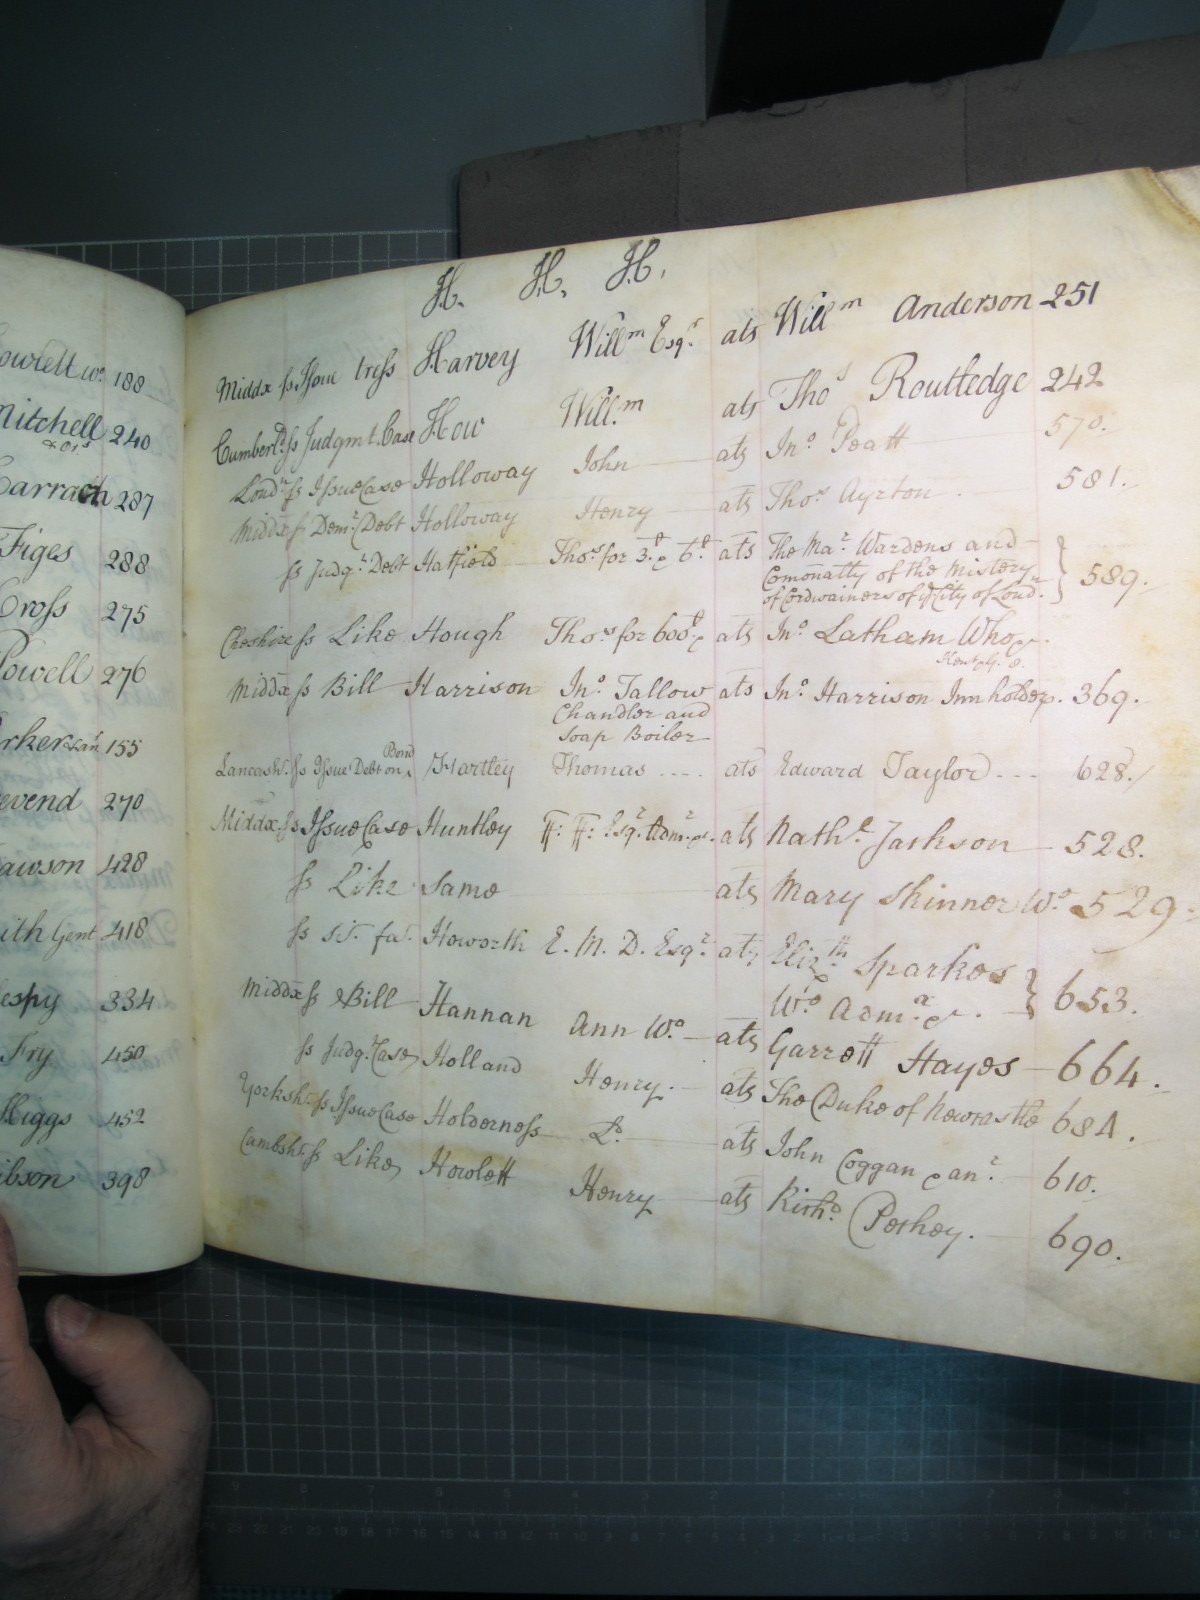 owlett wo. 188
Mitchell 240
& ors.
Carrach 287
Figes 288
Cross 275
Powell 276
rker 155
evend 270
awson 428
ith Gent 418
espy 334
Fry 450
Higgs 452
ibson 398
H. H. H.
Middx ss Issue tress Harvey Willm Esqr. ats Willm Anderson 251
Cumberld. ss Judgmt. Case How Will.m ats Thos Routledge 242
Londn. ss Issue Case Holloway John ats Jno. Peatt 570.
Middx ss Demr. Debt Holloway Henry ats Thos. Ayrton. 581.
ss Judgt. Debt Hatfield Thos. for 3.d & 6.d ats The Mar. Wardens and
Comonalty of the Mistery
of Cordwainers of ye City of Londn. } 589.
Cheshire ss Like Hough Thos. for 600 ats Jno. Latham Who
Middx ss Bill Harrison Jno. Tallow ats Jno. Harrison Innholder. 369.
Chandler and
Soap Boiler
Lancash. ss Issue Debt on Bond Hartley Thomas .... ats Edward Taylor - - - 628.
Middx. ss Issue Case Huntley F: F: Esqr. Admr. &c. ats Nathl. Jackson 528.
ss Like Same ats Mary Skinner Wo. 529
ss sci. fas. Howorth E. M. D. Esqr. ats Elizth. Sparkes
Wo. Admx. &c. } 653.
Middx ss Bill Hannan Ann Wo. ats Garrett Hayes 664.
ss Judg. Case Holland Henry. ats The Duke of Newcastle 684.
Yorksh. ss Issue Case Holderness Ld. ats John Coggan & anr. 610.
Cambsh. ss Like Howlett Henry ats Richd. Peshey. 690.